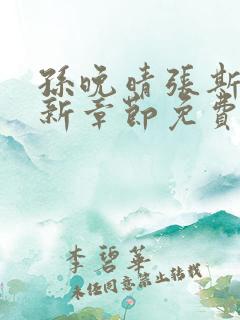 孫晚晴張斯
新章節免費
李碧華
未經同意禁止轉載